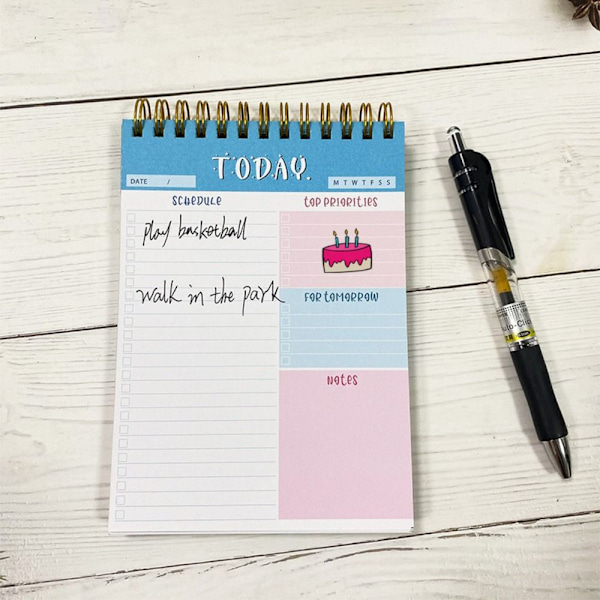 TODAY.
DATE /
M T W T F S S
SCHEDULE
TOP PRIORITIES
play basketball
walk in the park
FOR TOMORROW
NOTES